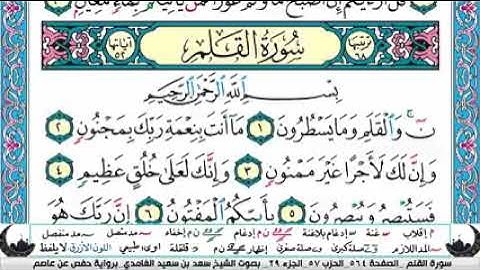 قُلْ أَرَءَيْتُمْ إِنْ أَصْبَحَ مَاؤُكُمْ غَوْرًا فَمَن يَأْتِيكُم بِمَاءٍ مَّعِينٍ
سُورَةُ الْقَلَمِ
بِسْمِ اللَّهِ الرَّحْمَٰنِ الرَّحِيمِ
نٓ وَالْقَلَمِ وَمَا يَسْطُرُونَ ١ مَا أَنتَ بِنِعْمَةِ رَبِّكَ بِمَجْنُونٍ ٢
وَإِنَّ لَكَ لَأَجْرًا غَيْرَ مَمْنُونٍ ٣ وَإِنَّكَ لَعَلَىٰ خُلُقٍ عَظِيمٍ ٤
فَسَتُبْصِرُ وَيُبْصِرُونَ ٥ بِأَييِّكُمُ الْمَفْتُونُ ٦ إِنَّ رَبَّكَ هُوَ
سورة القلم _الصفحة ٥٦٤ _الحزب ٥٧ _الجزء ٢٩ _ بصوت الشيخ سعد بن سعيد الغامدي _برواية حفص عن عاصم